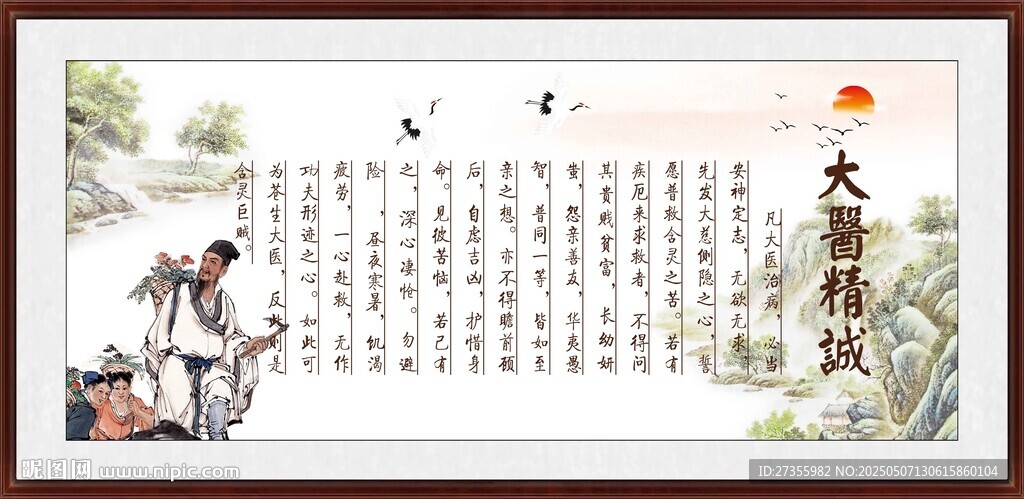 大醫精誠
凡大医治病，必当
安神定志，无欲无求，
先发大慈恻隐之心，誓
愿普救含灵之苦。若有
疾厄来求救者，不得问
其贵贱贫富，长幼妍
蚩，怨亲善友，华夷愚
智，普同一等，皆如至
亲之想。亦不得瞻前顾
后，自虑吉凶，护惜身
命。见彼苦恼，若己有
之，深心凄怆。勿避
险，昼夜寒暑，饥渴
疲劳，一心赴救，无作
功夫形迹之心。如此可
为苍生大医，反此则是
含灵巨贼。
昵图网 www.nipic.com
ID:27355982 NO:20250507130615860104